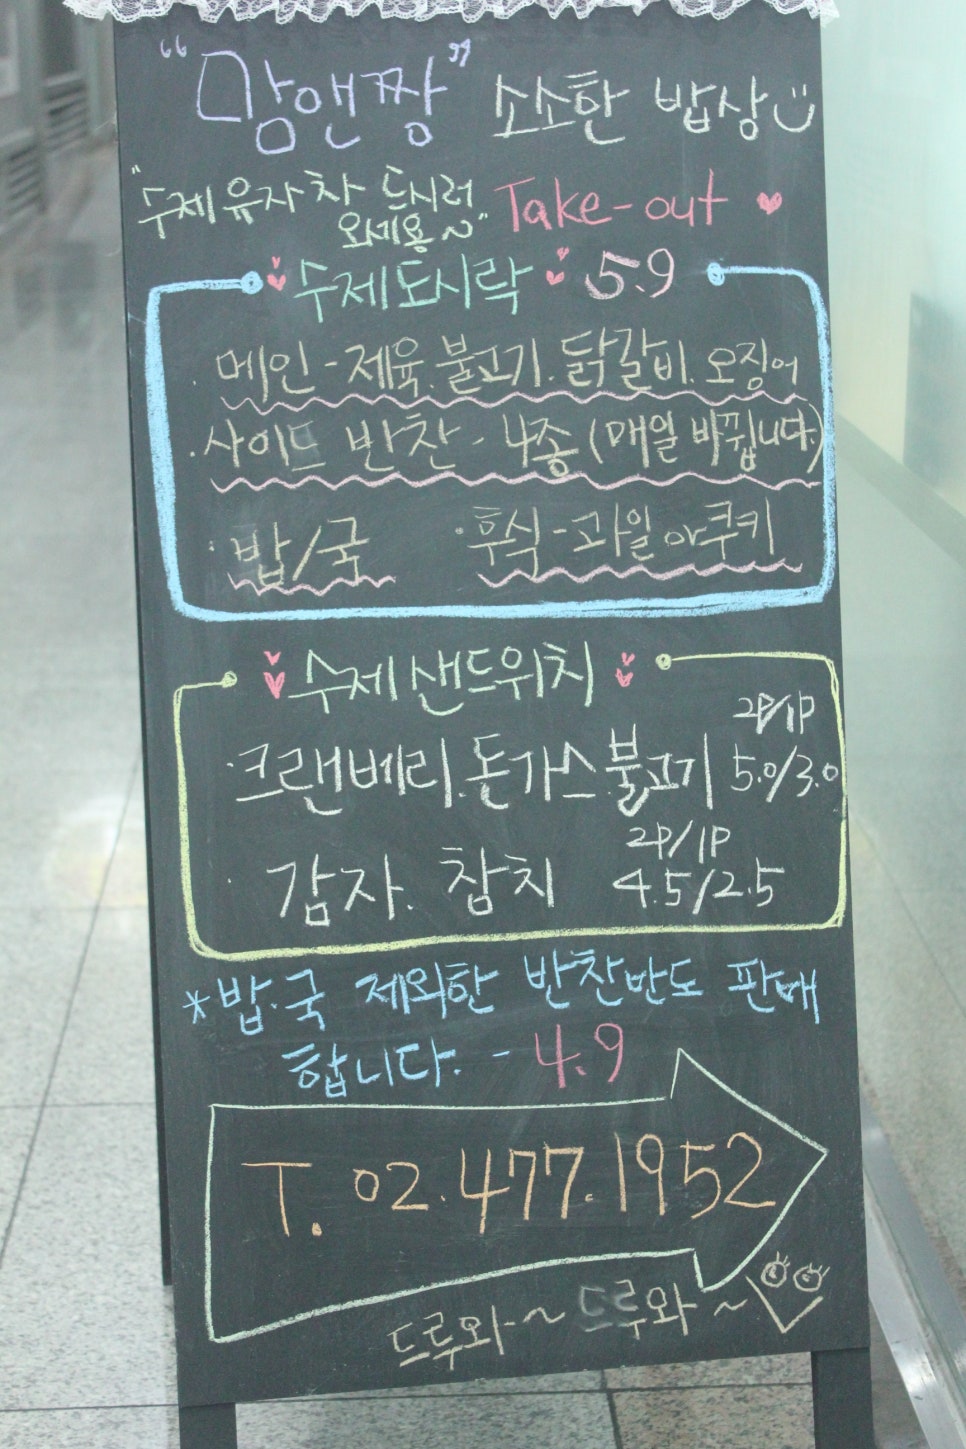 "맘앤짱" 소소한 밥상
"수제유자차 드시러 오세용~" Take-out
수제도시락 5.9
· 메인 - 제육. 불고기. 닭갈비. 오징어
· 사이드 반찬 - 4종 (매일 바뀝니다.)
· 밥/국 · 후식 - 과일 or 쿠키
수제샌드위치
2P/1P
· 크랜베리. 돈가스. 불고기 5.0/3.0
2P/1P
· 감자. 참치 4.5/2.5
*밥.국 제외한 반찬만도 판매
합니다. - 4.9
T. 02.477.1952
드루와~ 드루와~